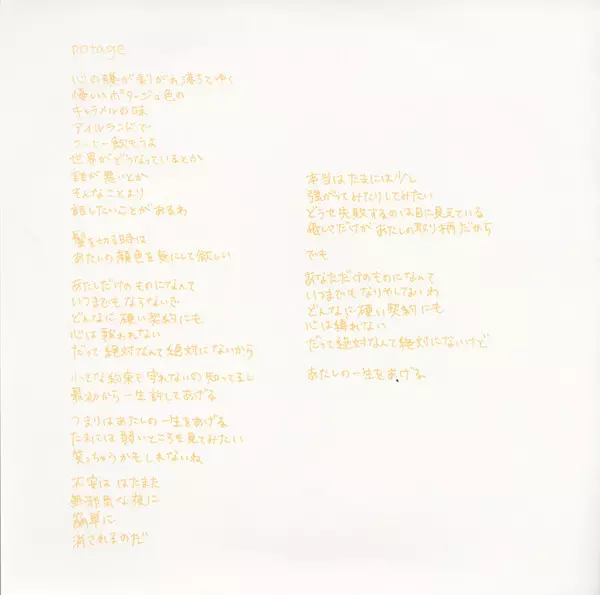 potage
心の膜が剥がれ落ちてゆく
優しいポタージュ色の
キャラメルの味
アイルランドで
コーヒー飲もうよ
世界がどうなっているとか
誰が悪いとか
そんなことより
話したいことがあるわ
髪を切る時は
あたしの顔色を気にして欲しい
あたしだけのものになんて
いつまでもならないで
どんなに硬い契約にも
心は報われない
だって絶対なんて絶対にないから
小さな約束も守れないの知ってるし
最初から一生許してあげる
つまりはあたしの一生をあげる
たまには弱いところを見てみたい
笑っちゃうかもしれないね
不安は はたまた
無邪気な夜に
簡単に
消されるのだ
本当はたまには少し
強がってみたりしてみたい
どうせ失敗するのは目に見えている
優しさだけがあたしの取り柄だから
でも
あなただけのものになんて
いつまでもなりやしないわ
どんなに硬い契約にも
心は縛れない
だって絶対なんて絶対にないけど
あたしの一生をあげる